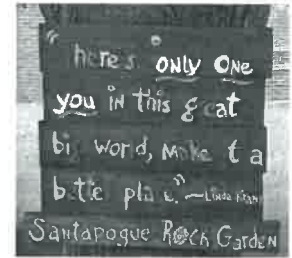 "There's only One
you in this great
big world, Make it a
better place." ~Linda Kranz
Santapogue Rock Garden